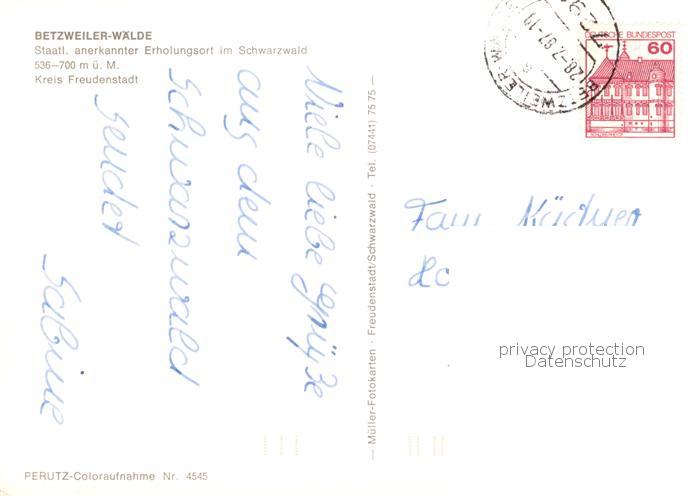 BETZWEILER-WÄLDE
Staatl. anerkannter Erholungsort im Schwarzwald
536–700 m ü. M.
Kreis Freudenstadt
Viele liebe Grüße
aus dem
Schwarzwald
sendet
Sabine
PERUTZ-Coloraufnahme Nr. 4545
— Müller-Fotokarten · Freudenstadt/Schwarzwald · Tel. (07441) 7575 —
DEUTSCHE BUNDESPOST
60
BETZWEILER-W
28.-7.87-10
Fam.
privacy protection
Datenschutz